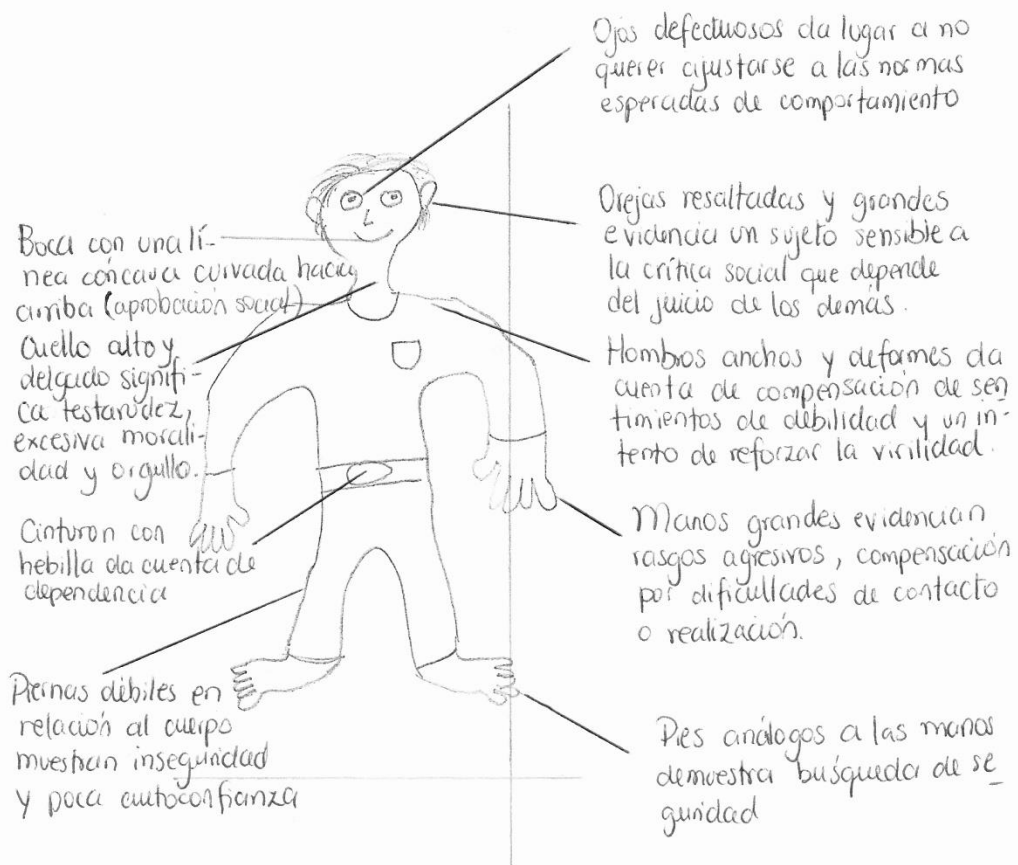 Ojos defectuosos da lugar a no
querer ajustarse a las normas
esperadas de comportamiento
Orejas resaltadas y grandes
evidencia un sujeto sensible a
la crítica social que depende
del juicio de los demás.
Hombros anchos y deformes da
cuenta de compensación de sen
timientos de debilidad y un in-
tento de reforzar la virilidad.
Manos grandes evidencian
rasgos agresivos, compensación
por dificultades de contacto
o realización.
Pies análogos a las manos
demuestra búsqueda de se_
guridad
Boca con una lí-
nea cóncava curvada hacia
arriba (aprobación social)
Cuello alto y
delgado signifi-
ca testarudez,
excesiva morali-
dad y orgullo.
Cinturon con
hebilla da cuenta de
dependencia
Piernas débiles en
relación al cuerpo
muestran inseguridad
y poca autoconfianza